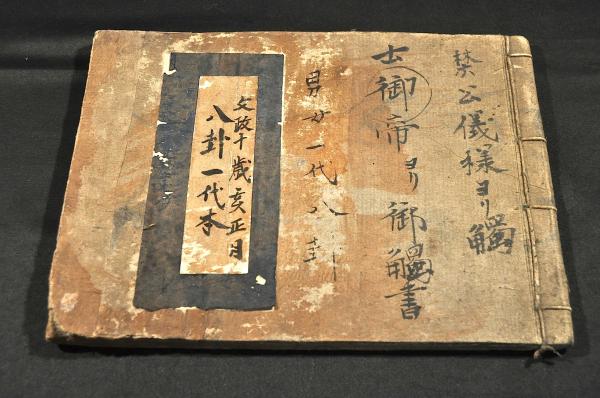 禁公儀様ヨリ觸
士御帝ヨリ御觸書
男女一代八
文政十歳亥正月
八卦一代本